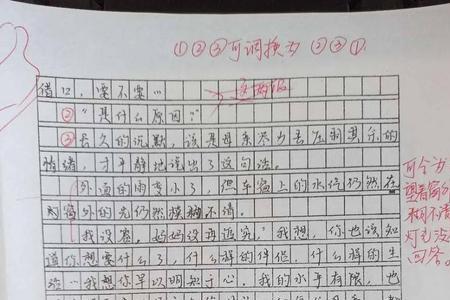 ①②③可调换为②③①.
借口,要不要…
② "是什么原因?"
③ 长久的沉默,该是母亲尽力丢在到哀乐的
情绪,才平静地说出了这句话。
外面的雨变小了,但车窗上的水汽仍然在
窗外的光仍然模糊不清。
"我没赛。妈妈没再追究,"我想,你也该知
道你想要什么了,什么样的伴侣,什么样的生
活…我想你早以明知于心。我的水平有限,也
可合为
望着窗外
模糊不清
灯光没
回答。